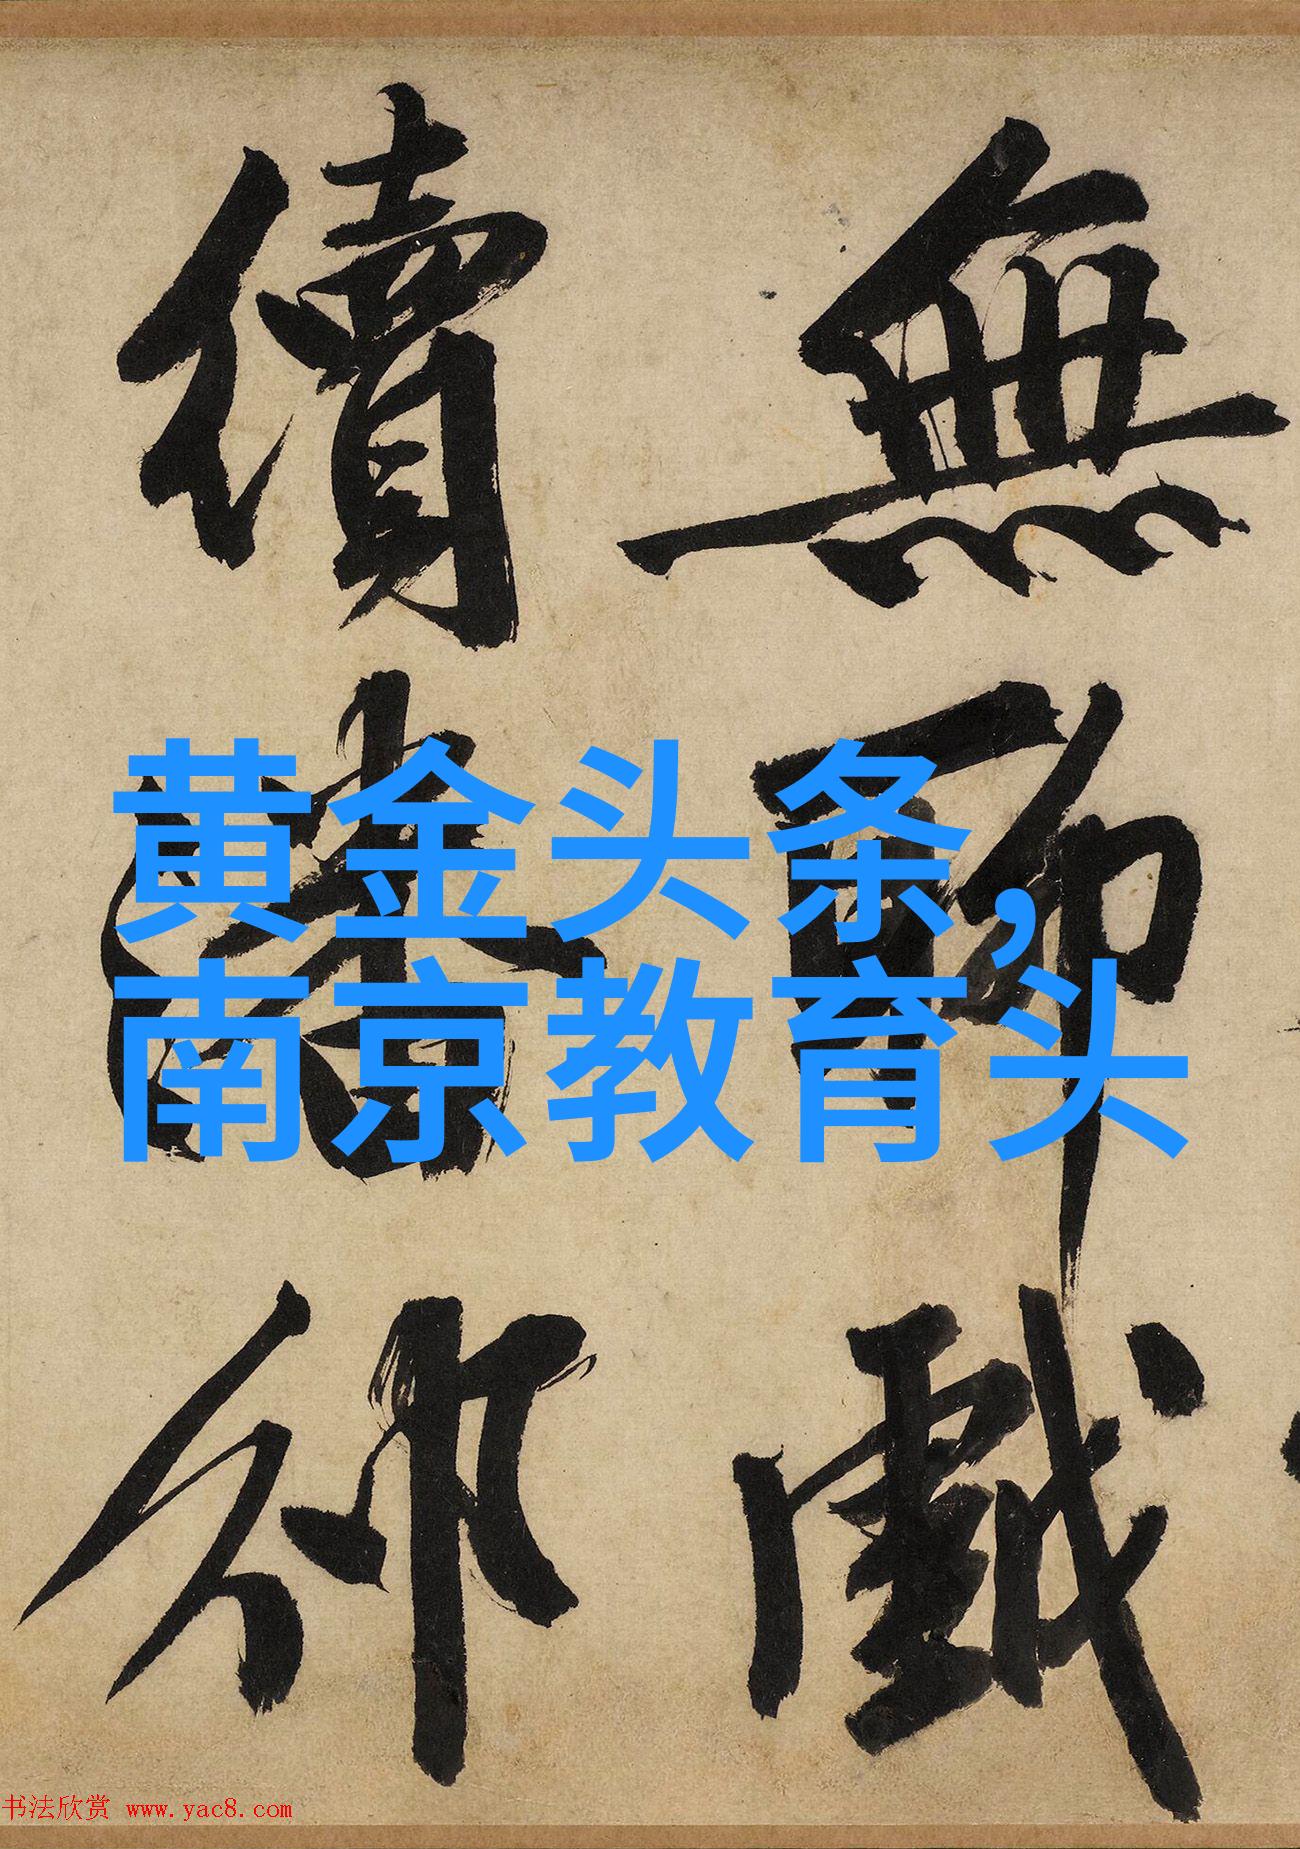 無聊戲
續潘邠
黄金头条，
南京教育头
书法欣赏 www.yac8.com